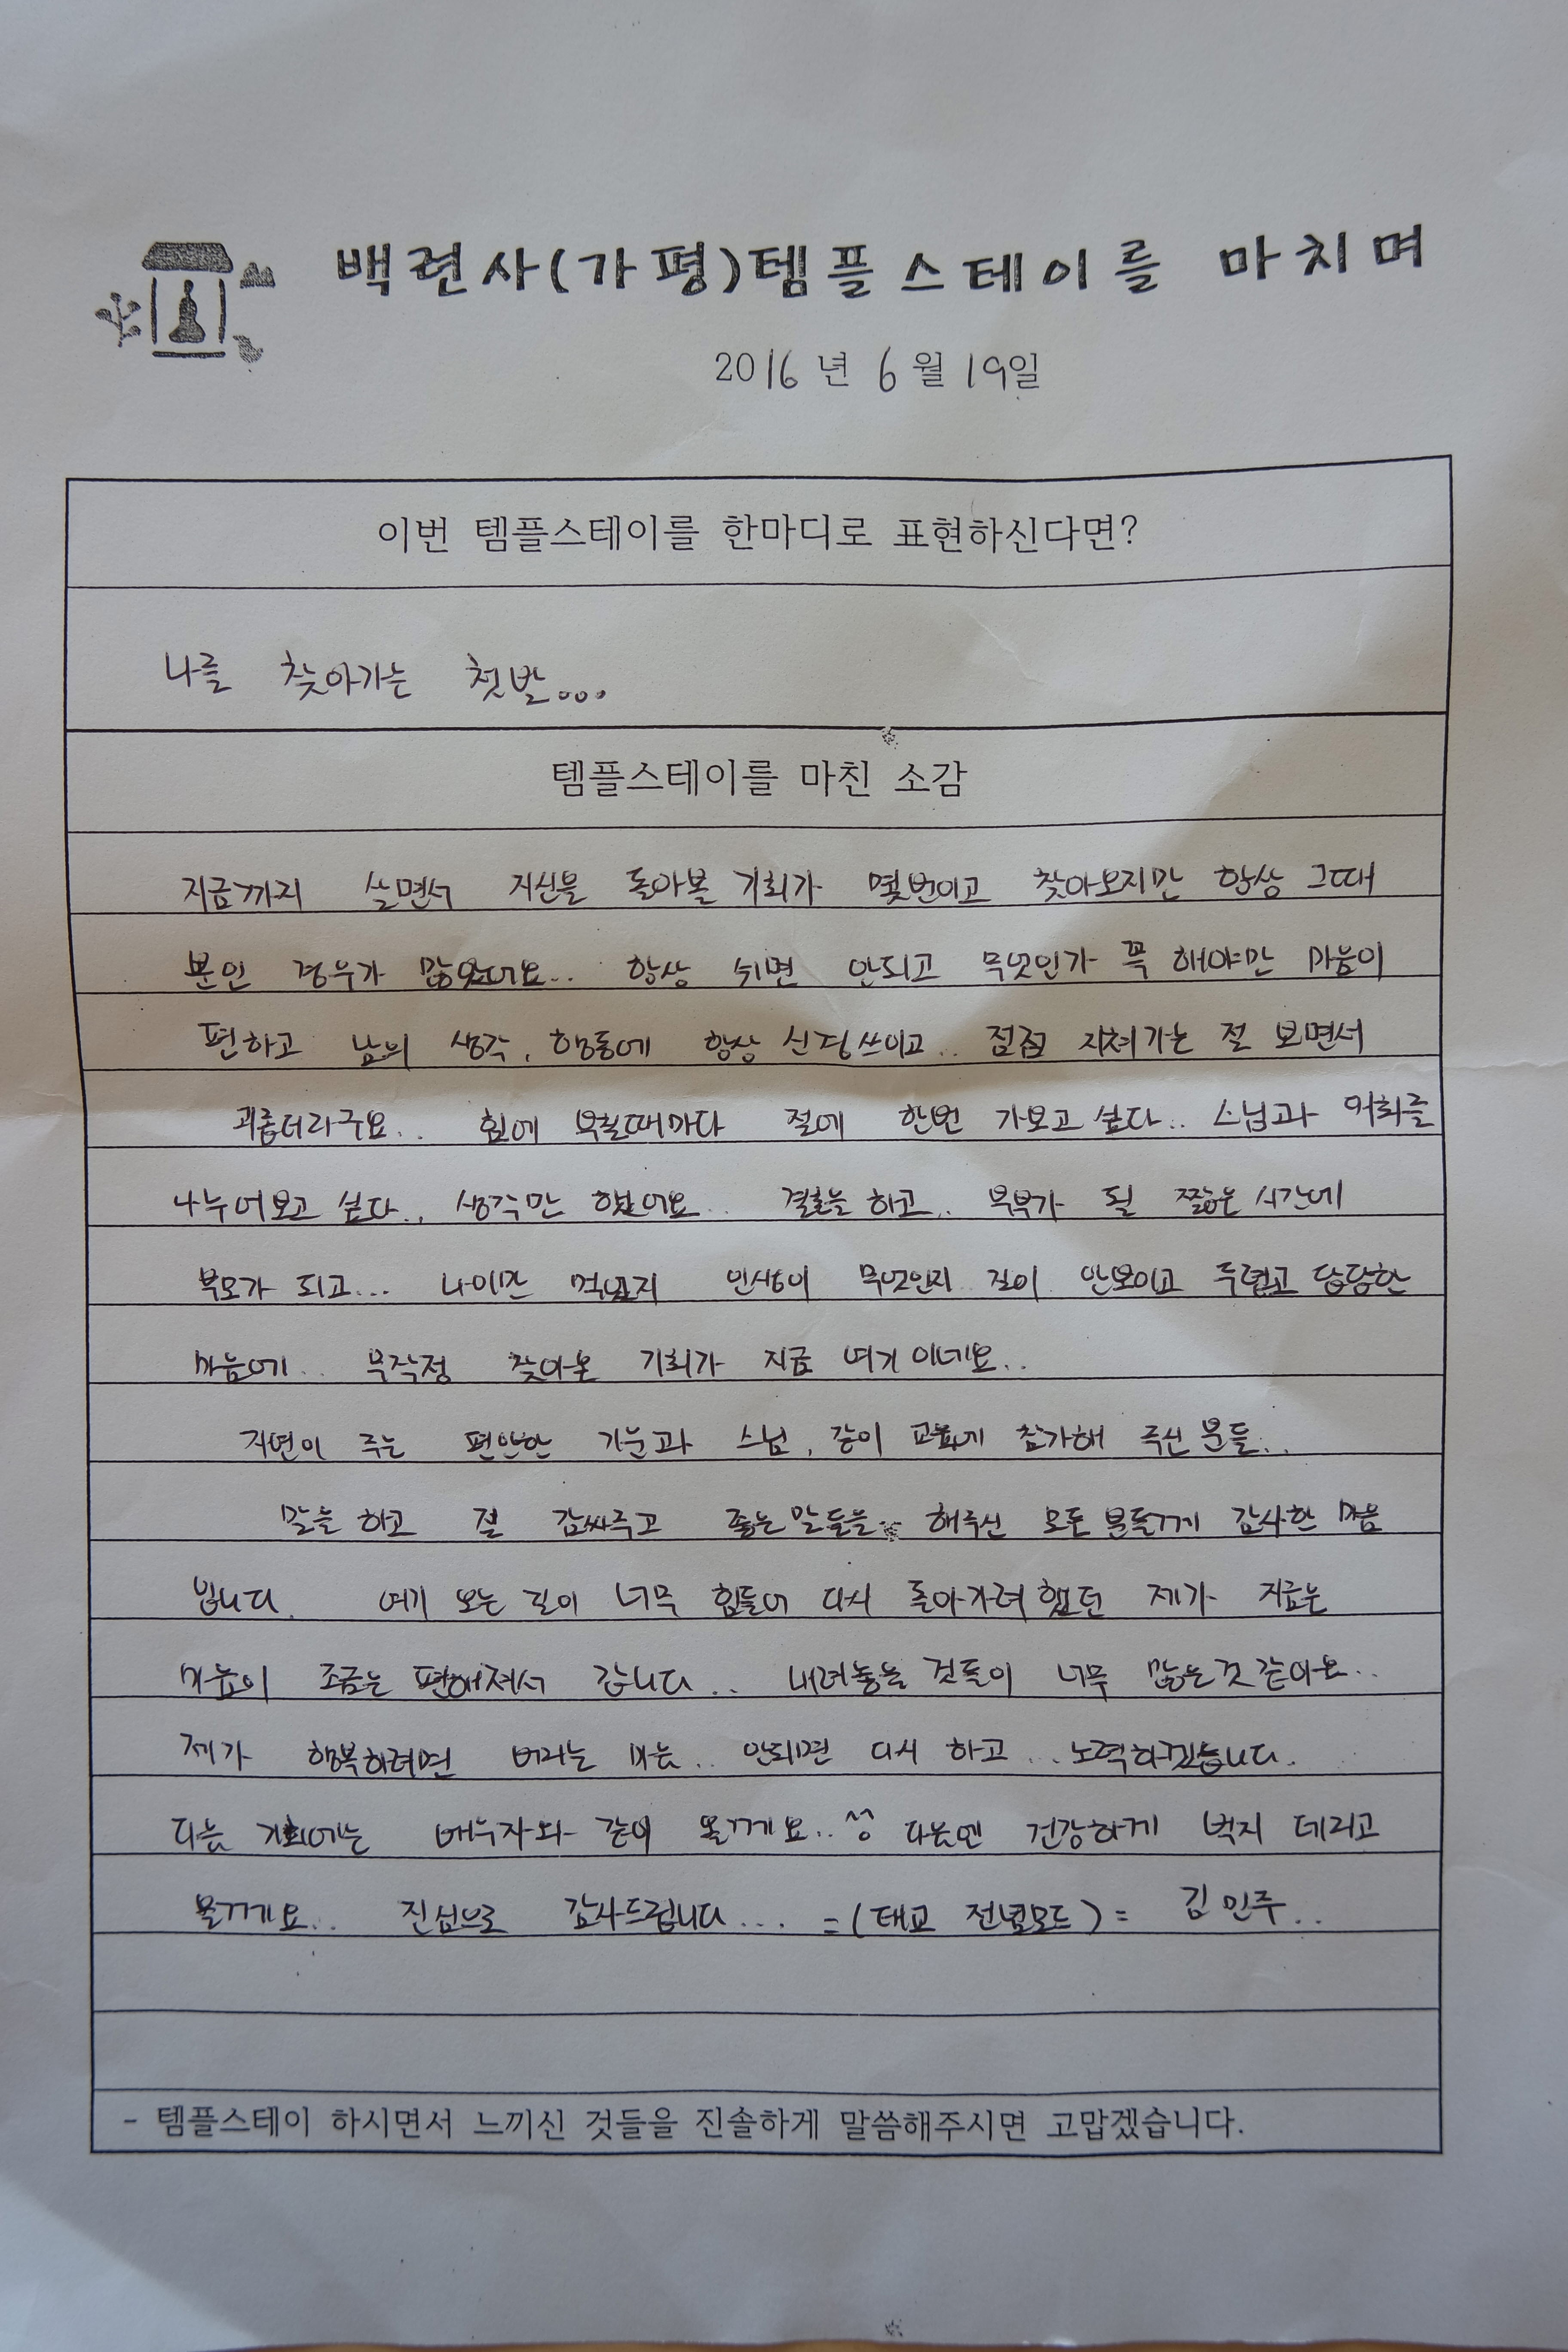 백련사(가평)템플스테이를 마치며
2016년 6월 19일
이번 템플스테이를 한마디로 표현하신다면?
나를 찾아가는 첫발...
템플스테이를 마친 소감
지금까지 살면서 자신을 돌아볼 기회가 몇번이고 찾아오지만 항상 그때
뿐인 경우가 많았어요.. 항상 쉬면 안되고 무엇인가 꼭 해야만 마음이
편하고 남의 생각, 행동에 항상 신경쓰이고.. 점점 지쳐가는 절 보면서
괴롭더라구요.. 힘에 부칠때마다 절에 한번 가보고 싶다.. 스님과 대화를
나누어보고 싶다.. 생각만 했어요.. 결혼을 하고.. 부부가 될 짧은 시간에
부모가 되고... 나이만 먹었지 인생이 무엇인지 길이 안보이고 두렵고 답답한
마음에.. 무작정 찾아온 기회가 지금 여기 이네요..
자연이 주는 편안한 기운과 스님, 같이 참가해 주신 분들..
말을 하고 절 감싸주고 좋은 말들을 해주신 모든 분들께 감사한 마음
입니다. 여기 오는 길이 너무 힘들어 다시 돌아가려 했던 제가 지금은
마음이 조금은 편해져서 갑니다.. 내려놓을 것들이 너무 많은것 같아요..
제가 행복하려면 버리는 마음.. 안되면 다시 하고... 노력하겠습니다.
다음 기회에는 배우자와 같이 올께요..^^ 다음엔 건강하게 벅지 데리고
올께요.. 진심으로 감사드립니다.... =(태교 전념모드)= 김민주..
- 템플스테이 하시면서 느끼신 것들을 진솔하게 말씀해주시면 고맙겠습니다.